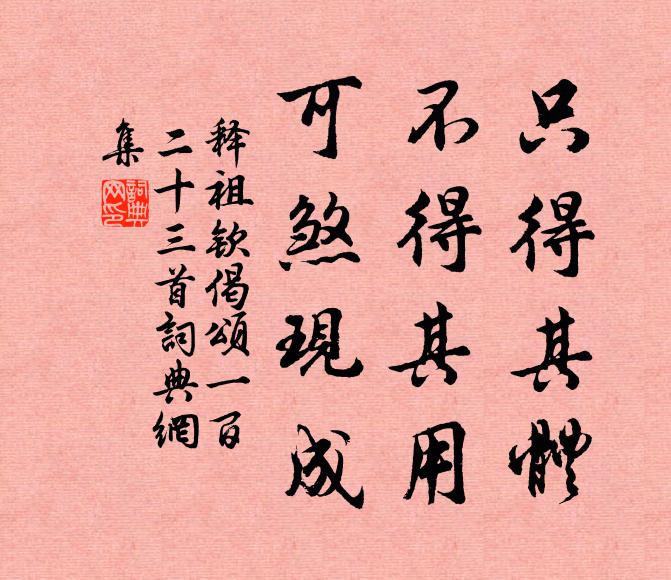 只得其體
不得其用
可煞現成
释祖钦偈頌一百
二十三首詞典網
集
詞典
网印